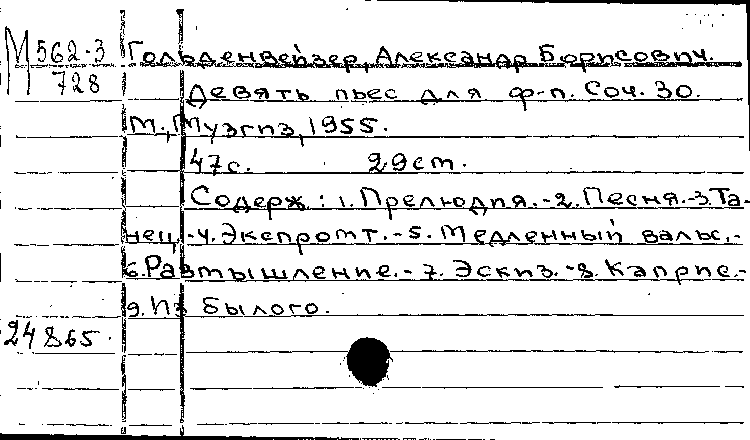 М 562-3
728
Гольденвейзер, Александр Борисович.
Девять пьес для ф-п. Соч. 30.
М., Музгиз, 1955.
47 с. 29 см.
Содерж: 1. Прелюдия.-2. Песня.-3. Та-
нец.-4. Экспромт.-5. Медленный вальс.-
6. Размышление.-7. Эскиз.-8. Каприс.-
9. Из былого.
24865.